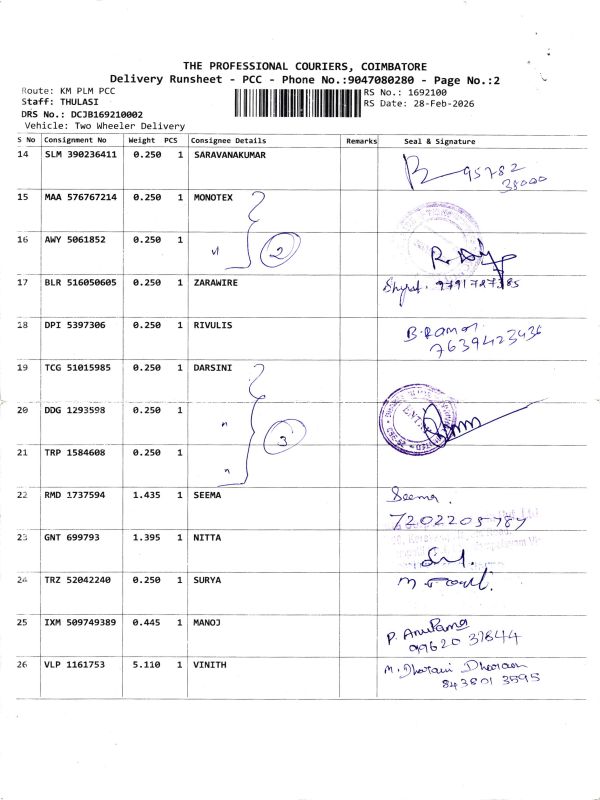 THE PROFESSIONAL COURIERS, COIMBATORE
Delivery Runsheet - PCC - Phone No.:9047080280 - Page No.:2
Route: KM PLM PCC
Staff: THULASI
DRS No.: DCJB169210002
Vehicle: Two Wheeler Delivery
RS No.: 1692100
RS Date: 28-Feb-2026
S No Consignment No Weight PCS Consignee Details Remarks Seal & Signature
14 SLM 390236411 0.250 1 SARAVANAKUMAR 95782
38000
15 MAA 576767214 0.250 1 MONOTEX
16 AWY 5061852 0.250 1 2
17 BLR 516050605 0.250 1 ZARAWIRE 9791787385
18 DPI 5397306 0.250 1 RIVULIS B. Raman
7639423436
19 TCG 51015985 0.250 1 DARSINI
20 DDG 1293598 0.250 1 3
21 TRP 1584608 0.250 1
22 RMD 1737594 1.435 1 SEEMA Seema.
7202205787
23 GNT 699793 1.395 1 NITTA
24 TRZ 52042240 0.250 1 SURYA
25 IXM 509749389 0.445 1 MANOJ P. Anupama
99620 37844
26 VLP 1161753 5.110 1 VINITH
843801 3595